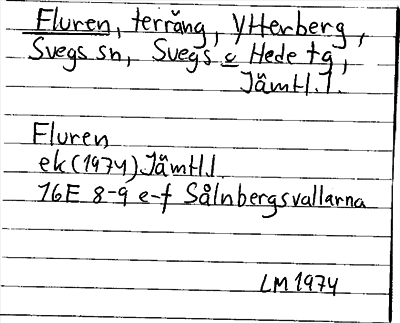 Fluren, terräng, Ytterberg,
Svegs sn, Svegs o Hede tg,
Jämtl. l.
Fluren
ek (1974) Jämtl.l.
16E 8-9 e-f Sålnbergsvallarna
LM 1974